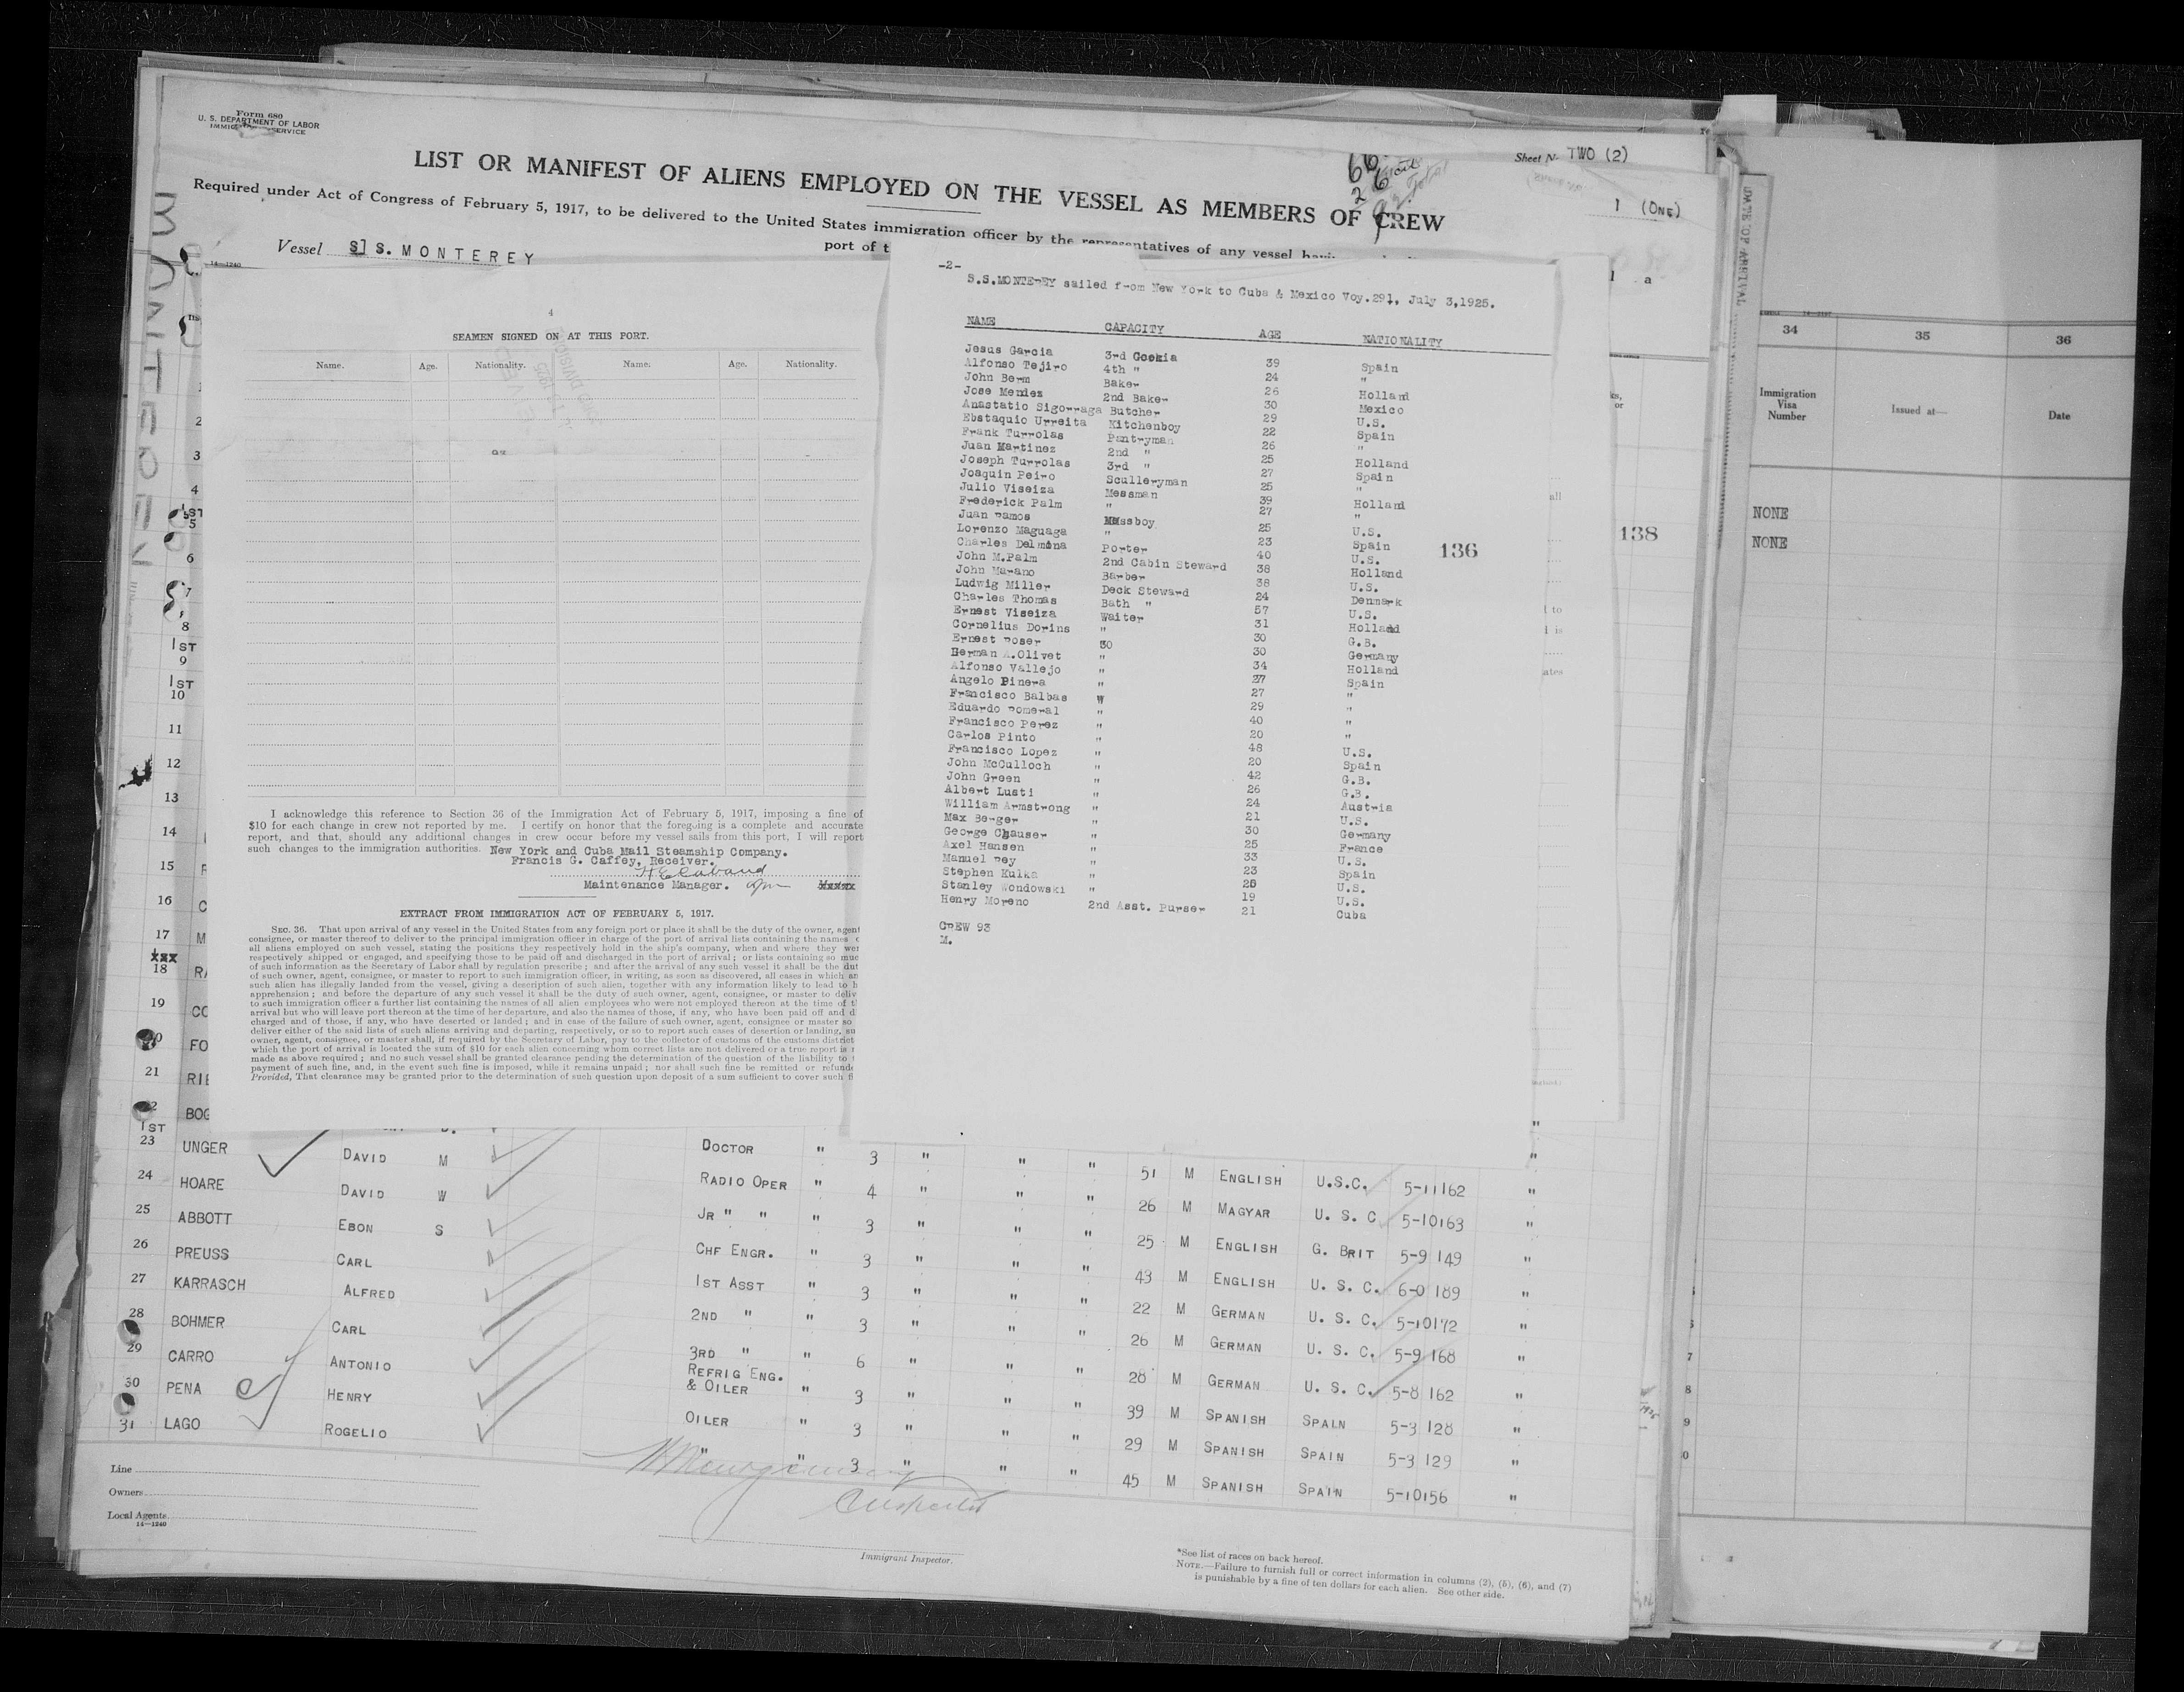 Form 680
U. S. DEPARTMENT OF LABOR
Sheet No TWO (2)
LIST OR MANIFEST OF ALIENS EMPLOYED ON THE VESSEL AS MEMBERS OF CREW
Required under Act of Congress of February 5, 1917, to be delivered to the United States immigration officer by the representatives of any vessel
1 (ONE)
Vessel S] S. MONTEREY
port of
14—1240
4
SEAMEN SIGNED ON AT THIS PORT.
Name. Age. Nationality. Name. Age. Nationality.
I acknowledge this reference to Section 36 of the Immigration Act of February 5, 1917, imposing a fine of
$10 for each change in crew not reported by me. I certify on honor that the foregoing is a complete and accurate
report, and that, should any additional changes in crew occur before my vessel sails from this port, I will report
such changes to the immigration authorities. New York and Cuba Mail Steamship Company.
Francis G. Caffey, Receiver.
Maintenance Manager.
EXTRACT FROM IMMIGRATION ACT OF FEBRUARY 5, 1917.
SEC. 36. That upon arrival of any vessel in the United States from any foreign port or place it shall be the duty of the owner, agent
consignee, or master thereof to deliver to the principal immigration officer in charge of the port of arrival lists containing the names
all aliens employed on such vessel, stating the positions they respectively hold in the ship's company, when and where they
respectively shipped or engaged, and specifying those to be paid off and discharged in the port of arrival; or lists containing so
of such information as the Secretary of Labor shall by regulation prescribe; and after the arrival of any such vessel it shall be the
of such owner, agent, consignee, or master to report to such immigration officer, in writing, as soon as discovered, all cases in which
such alien has illegally landed from the vessel, giving a description of such alien, together with any information likely to lead to
apprehension; and before the departure of any such vessel it shall be the duty of such owner, agent, consignee, or master to
to such immigration officer a further list containing the names of all alien employees who were not employed thereon at the time of
arrival but who will leave port thereon at the time of her departure, and also the names of those, if any, who have been paid off and
charged and of those, if any, who have deserted or landed; and in case of the failure of such owner, agent, consignee or master so
deliver either of the said lists of such aliens arriving and departing, respectively, or so to report such cases of desertion or landing,
owner, agent, consignee, or master shall, if required by the Secretary of Labor, pay to the collector of customs of the customs district
which the port of arrival is located the sum of $10 for each alien concerning whom correct lists are not delivered or a true report is
made as above required; and no such vessel shall be granted clearance pending the determination of the question of the liability to
payment of such fine, and, in the event such fine is imposed, while it remains unpaid; nor shall such fine be remitted or
Provided, That clearance may be granted prior to the determination of such question upon deposit of a sum sufficient to cover such
-2-
S.S.MONTEREY sailed from New York to Cuba & Mexico Voy.291, July 3,1925.
NAME CAPACITY AGE NATIONALITY
Jesus Garcia 3rd 39 Spain
Alfonso Tejiro 4th " 24 "
John Berm Baker 26 Holland
Jose Mendes 2nd Baker 30 Mexico
Anastatio Sigorraga Butcher 29 U.S.
Ebstaquio Urreita Kitchenboy 22 Spain
Frank Turrolas Pantryman 26 "
Juan Martinez 2nd " 25 Holland
Joseph Turrolas 3rd " 27 Spain
Joaquin Peiro Sculleryman 25 "
Julio Viseiza Messman 39 Holland
Frederick Palm " 27 "
Juan Ramos Messboy 25 U.S.
Lorenzo Maguaga " 23 Spain
Charles Delmena Porter 40 U.S.
John M.Palm 2nd Cabin Steward 38 Holland
John Marano Barber 38 U.S.
Ludwig Miller Deck Steward 24 Denmark
Charles Thomas Bath " 57 U.S.
Ernest Viseiza Waiter 31 Holland
Cornelius Dorins " 30 G.B.
Ernest Roser 30 30 Germany
Herman A.Olivet " 34 Holland
Alfonso Vallejo " 27 Spain
Angelo Pinera " 27 "
Francisco Balbas " 29 "
Eduardo Romeral " 40 "
Francisco Perez " 20 "
Carlos Pinto " 48 U.S.
Francisco Lopez " 20 Spain
John McCulloch " 42 G.B.
John Green " 26 G.B.
Albert Lusti " 24 Austria
William Armstrong " 21 U.S.
Max Berger " 30 Germany
George Chauser " 25 France
Axel Hansen " 33 U.S.
Manuel Rey " 23 Spain
Stephen Kulka " 25 U.S.
Stanley Wondowski " 19 U.S.
Henry Moreno 2nd Asst. Purser 21 Cuba
CREW 93
M.
136
138
34 35 36
Immigration Visa Number Issued at— Date
NONE
NONE
23 UNGER DAVID M DOCTOR " 3 " " " 51 M ENGLISH U.S.C. 5-11 162 "
24 HOARE DAVID W RADIO OPER " 4 " " " 26 M MAGYAR U. S. C 5-10 163 "
25 ABBOTT EBON S JR " " " 3 " " " 25 M ENGLISH G. BRIT 5-9 149 "
26 PREUSS CARL CHF ENGR. " 3 " " " 43 M ENGLISH U. S. C. 6-0 189 "
27 KARRASCH ALFRED 1ST ASST " 3 " " " 22 M GERMAN U. S. C. 5-10 172 "
28 BOHMER CARL 2ND " " 3 " " " 26 M GERMAN U. S. C. 5-9 168 "
29 CARRO ANTONIO 3RD " " 6 " " " 28 M GERMAN U. S. C. 5-8 162 "
30 PENA HENRY REFRIG ENG. & OILER " 3 " " " 39 M SPANISH SPAIN 5-3 128 "
31 LAGO ROGELIO OILER " 3 " " " 29 M SPANISH SPAIN 5-3 129 "
" " 3 " " " 45 M SPANISH SPAIN 5-10 156 "
Line
Owners
Local Agents
14—1240
Immigrant Inspector.
*See list of races on back hereof.
NOTE.—Failure to furnish full or correct information in columns (2), (5), (6), and (7)
is punishable by a fine of ten dollars for each alien. See other side.